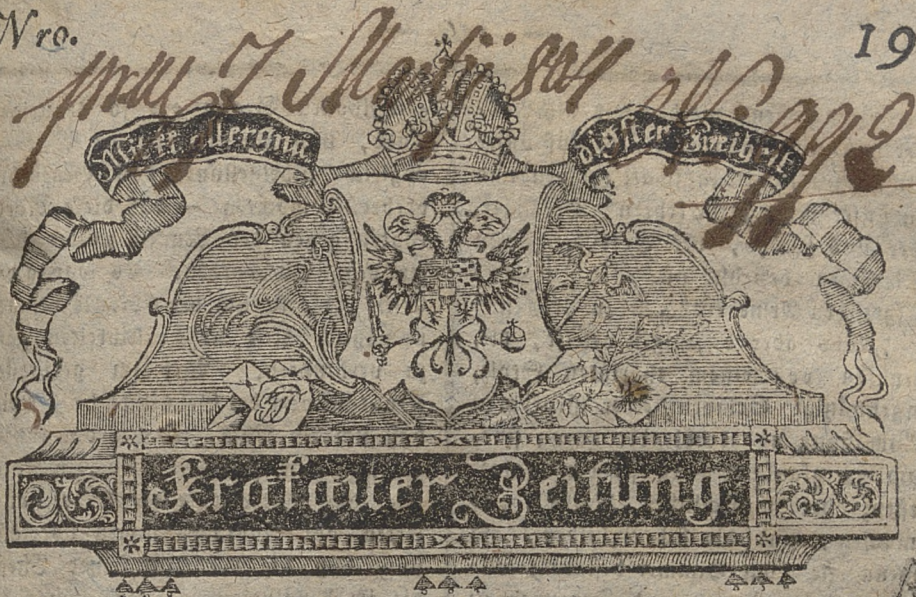 Nro. 19
7 Maij 804
Mit kk allergnä digster Freiheit
Krakauer Zeitung.